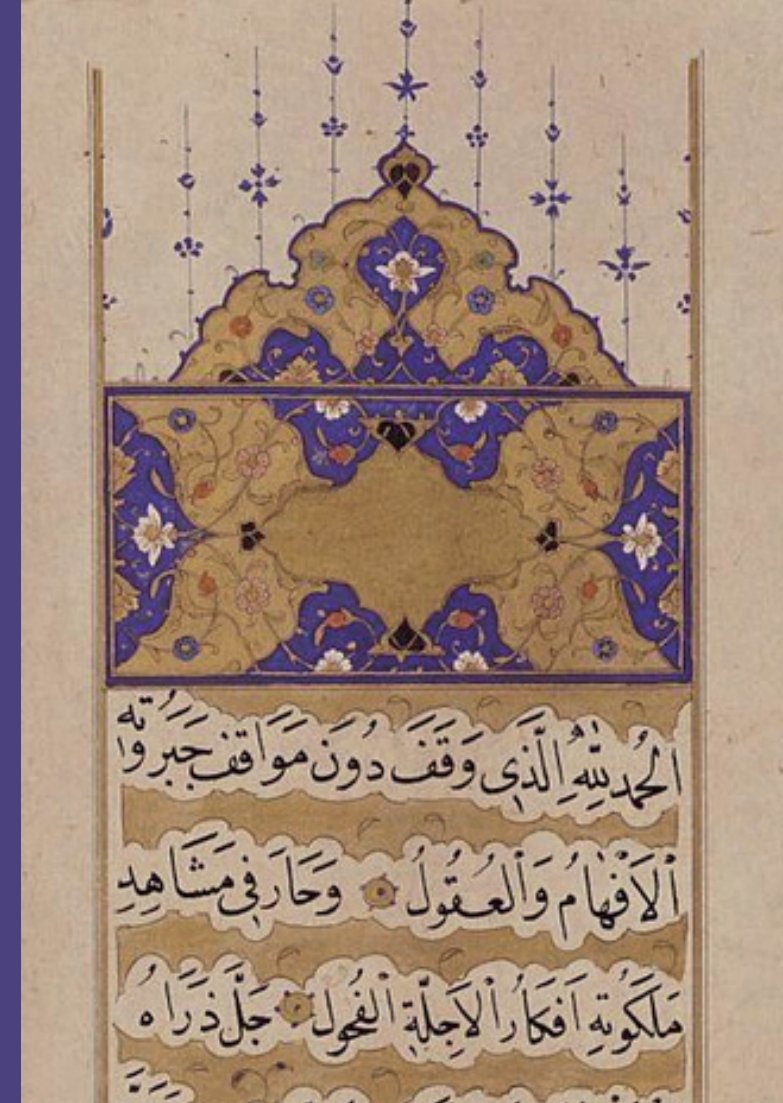 اَلْحُمدُ لِلّٰهِ الَّذِى وَقَفَ دُونَ مَوَاقِفِ جَبَرُوتِهِ
اْلاَفْهَامُ وَالْعُقُولُ وَحَارَ فِى مَشَاهِدِ
مَلَكُوتِهِ اَفْكَارُ الاَجِلَّةِ الْفُحُولِ جَلَّ ذَرَاهُ